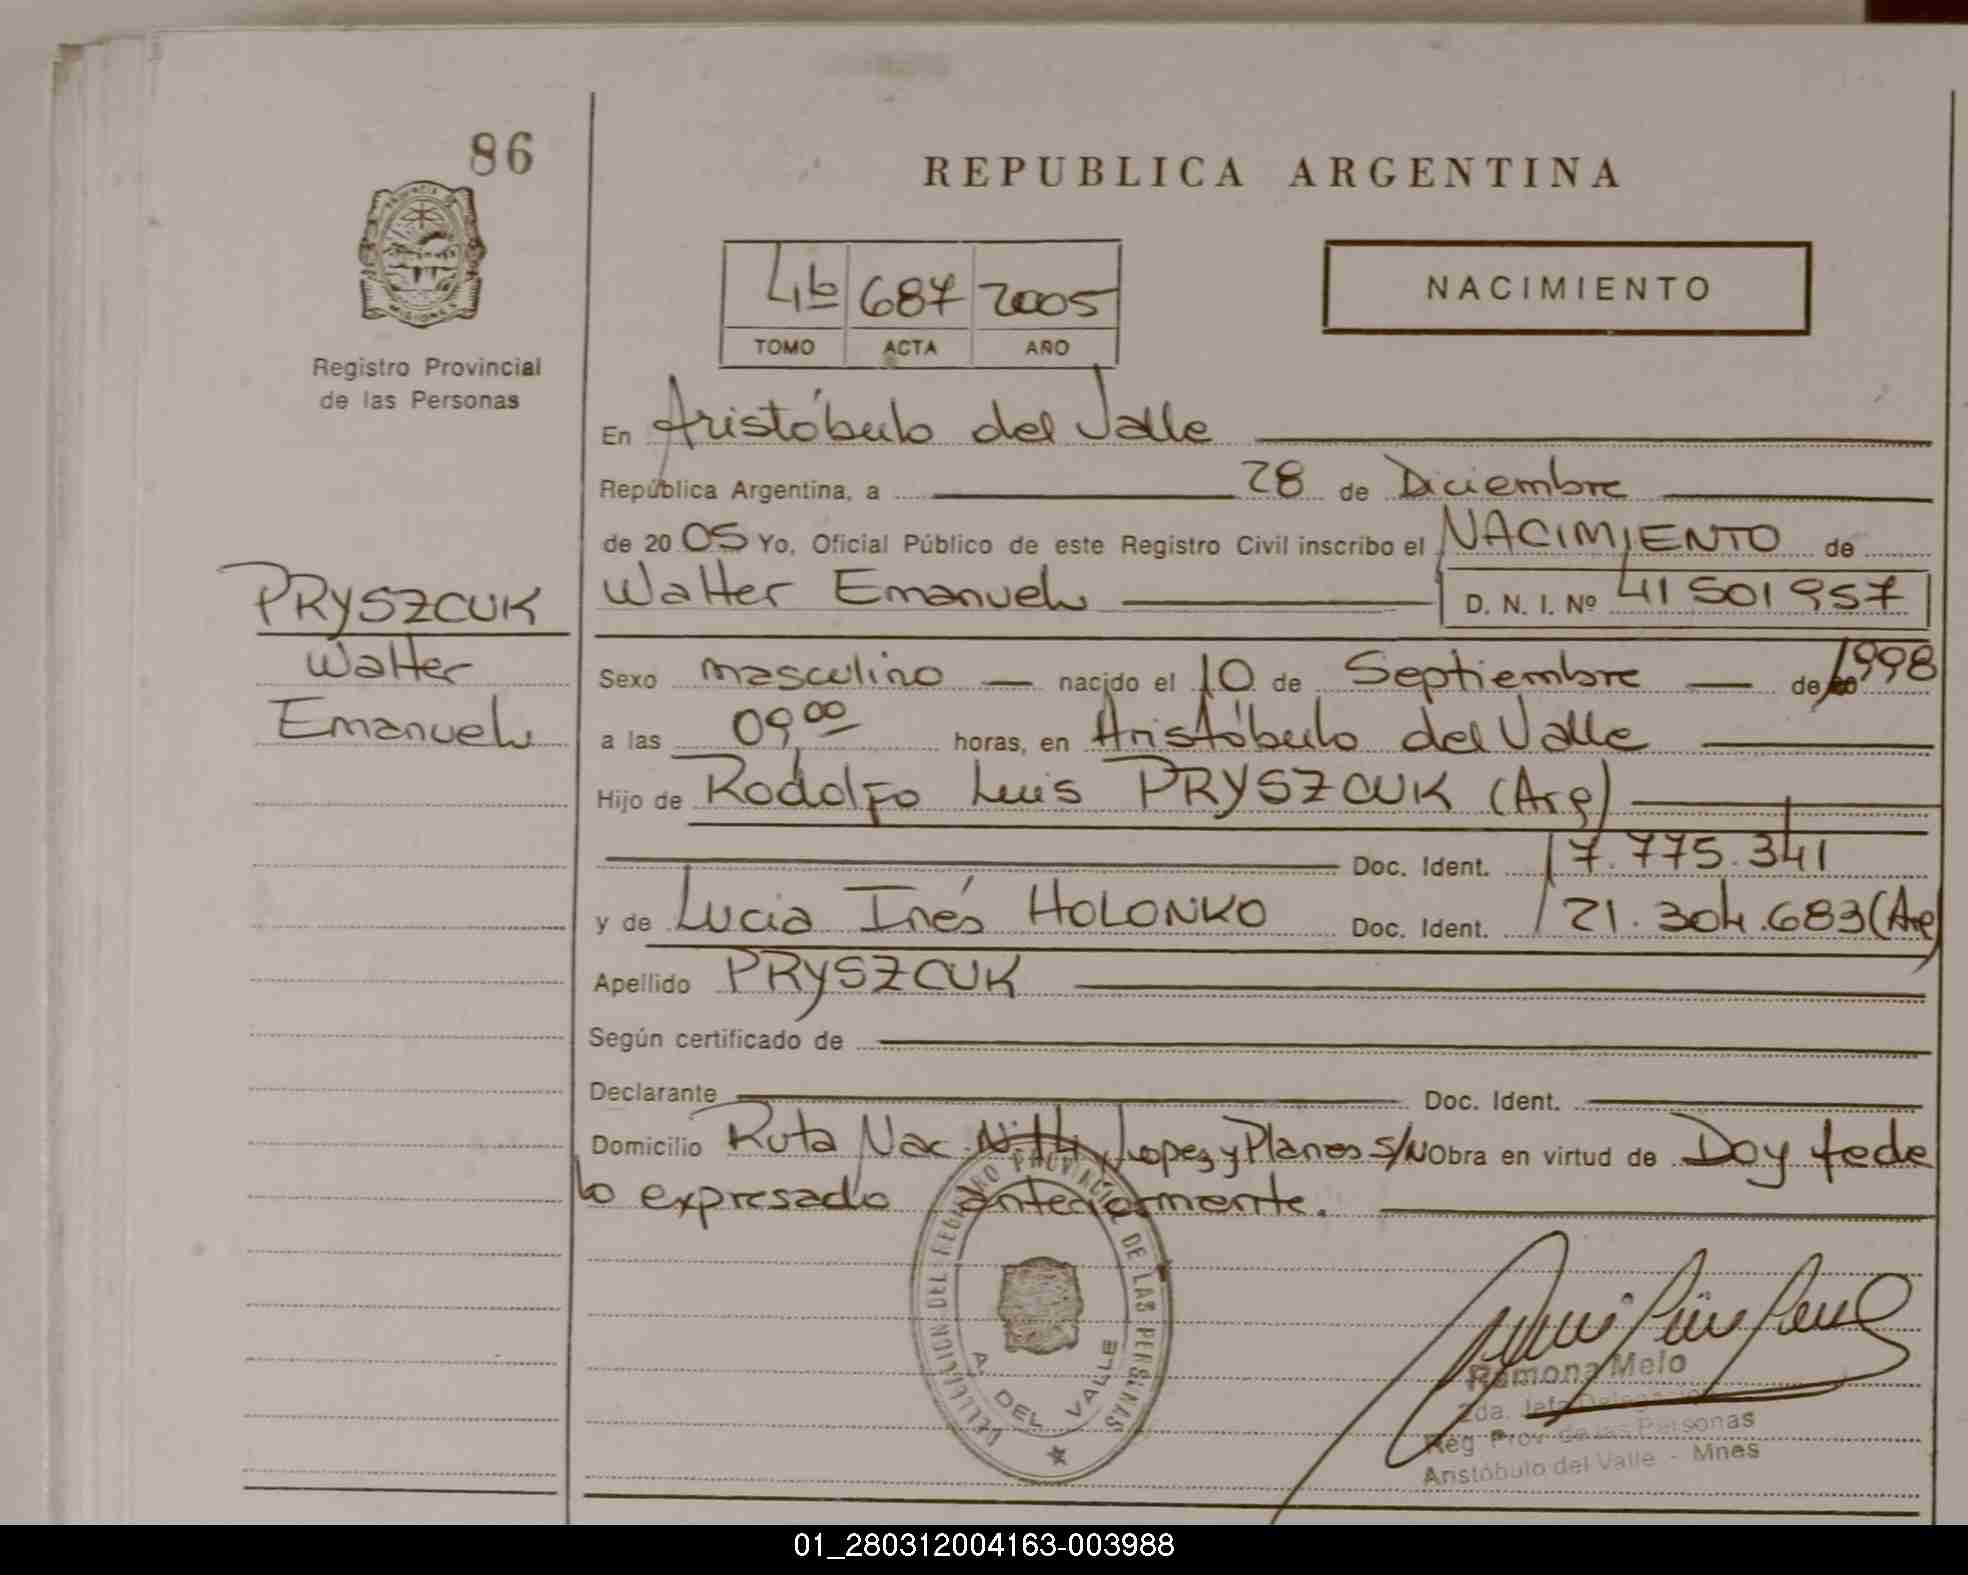 86
REPUBLICA ARGENTINA
4b 687 2005
TOMO ACTA AÑO
NACIMIENTO
Registro Provincial
de las Personas
En Aristóbulo del Valle
República Argentina, a 28 de Diciembre
de 2005 Yo, Oficial Público de este Registro Civil inscribo el NACIMIENTO de
PRYSZCUK
Walter
Emanuel
Walter Emanuel D. N. I. Nº 41501957
Sexo masculino nacido el 10 de Septiembre de 1998
a las 09,00 horas, en Aristóbulo del Valle
Hijo de Rodolfo Luis PRYSZCUK (Arg)
Doc. Ident. 17.775.341
y de Lucia Inés HOLONKO Doc. Ident. 21.304.683 (Arg)
Apellido PRYSZCUK
Según certificado de
Declarante Doc. Ident.
Domicilio Ruta Nac. Lopez y Planes S/N Obra en virtud de Doy fe de
lo expresado anteriormente.
DELEGACION DEL REGISTRO PROVINCIAL DE LAS PERSONAS
A. DEL VALLE
Ramona Melo
2da. Jefa
Reg Prov de las Personas
Aristóbulo del Valle - Mnes
01_280312004163-003988